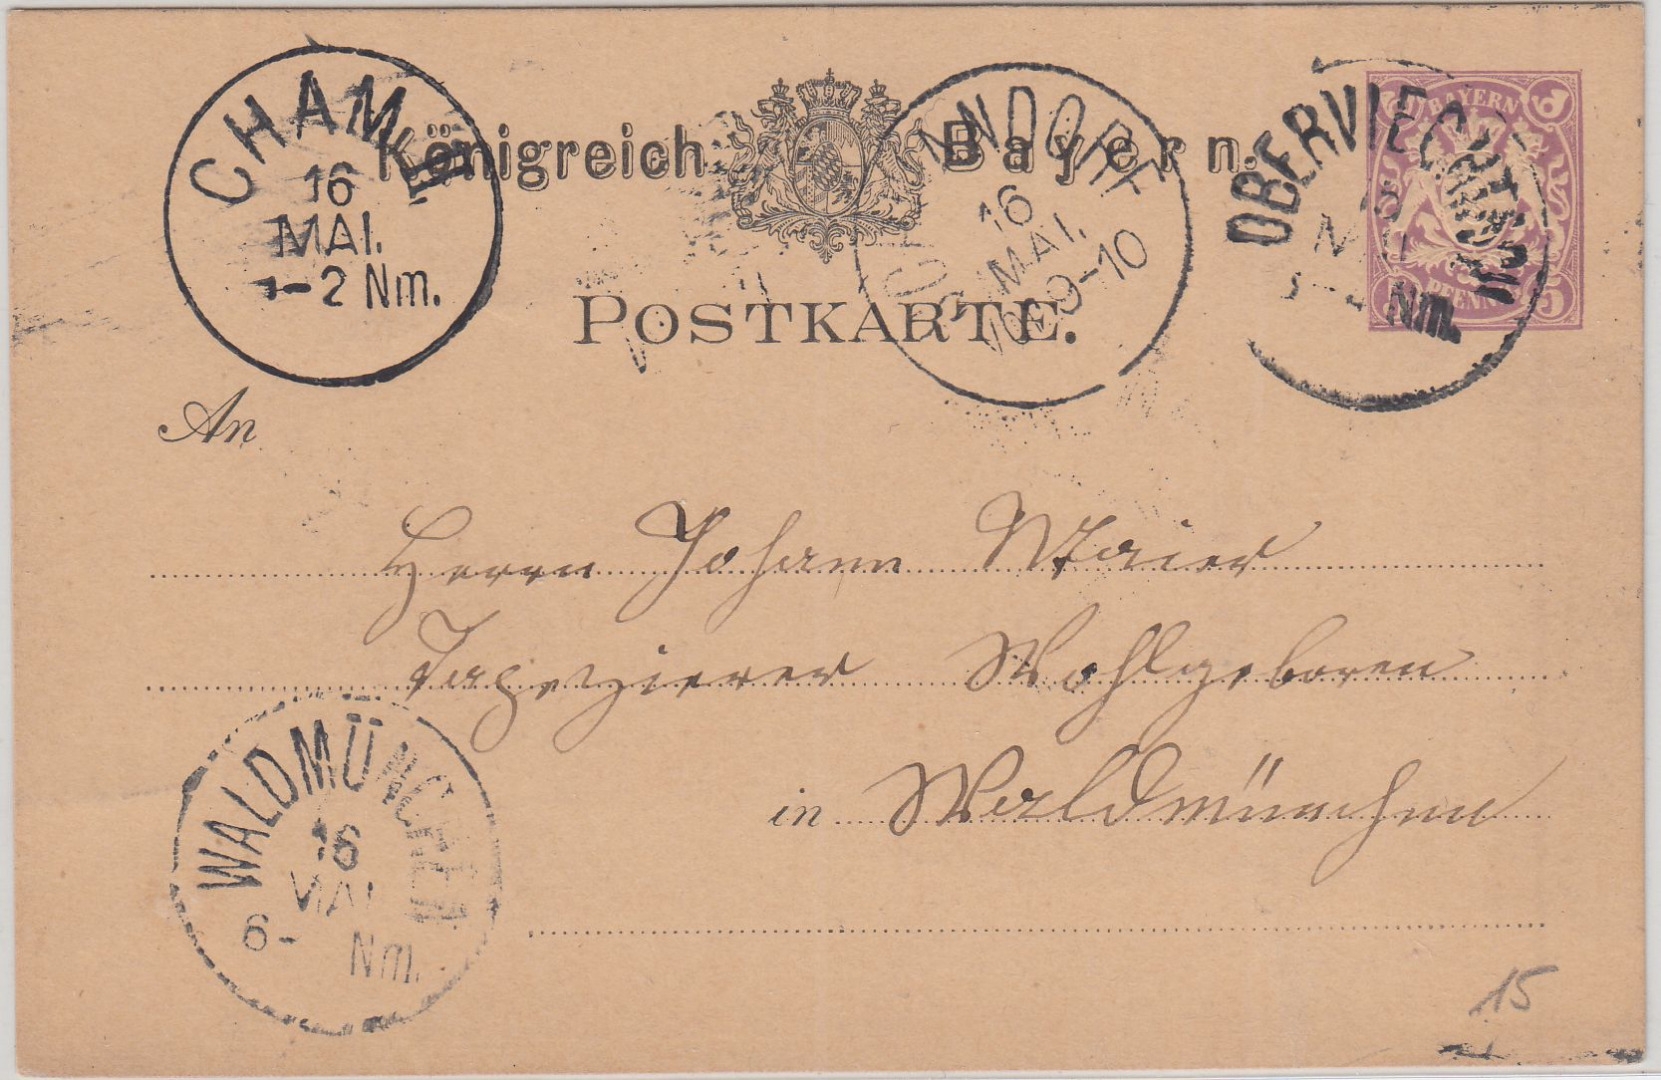 Königreich Bayern.
POSTKARTE.
CHAM
16
MAI.
1-2 Nm.
16
MAI.
9-10
OBERVIECHTACH
MAI
Nm.
BAYERN
PFENNIG
5
An
Herrn Johann Maier
Tapezierer Wohlgeboren
in Waldmünchen
WALDMÜNCHEN
16
MAI
6- Nm.
15